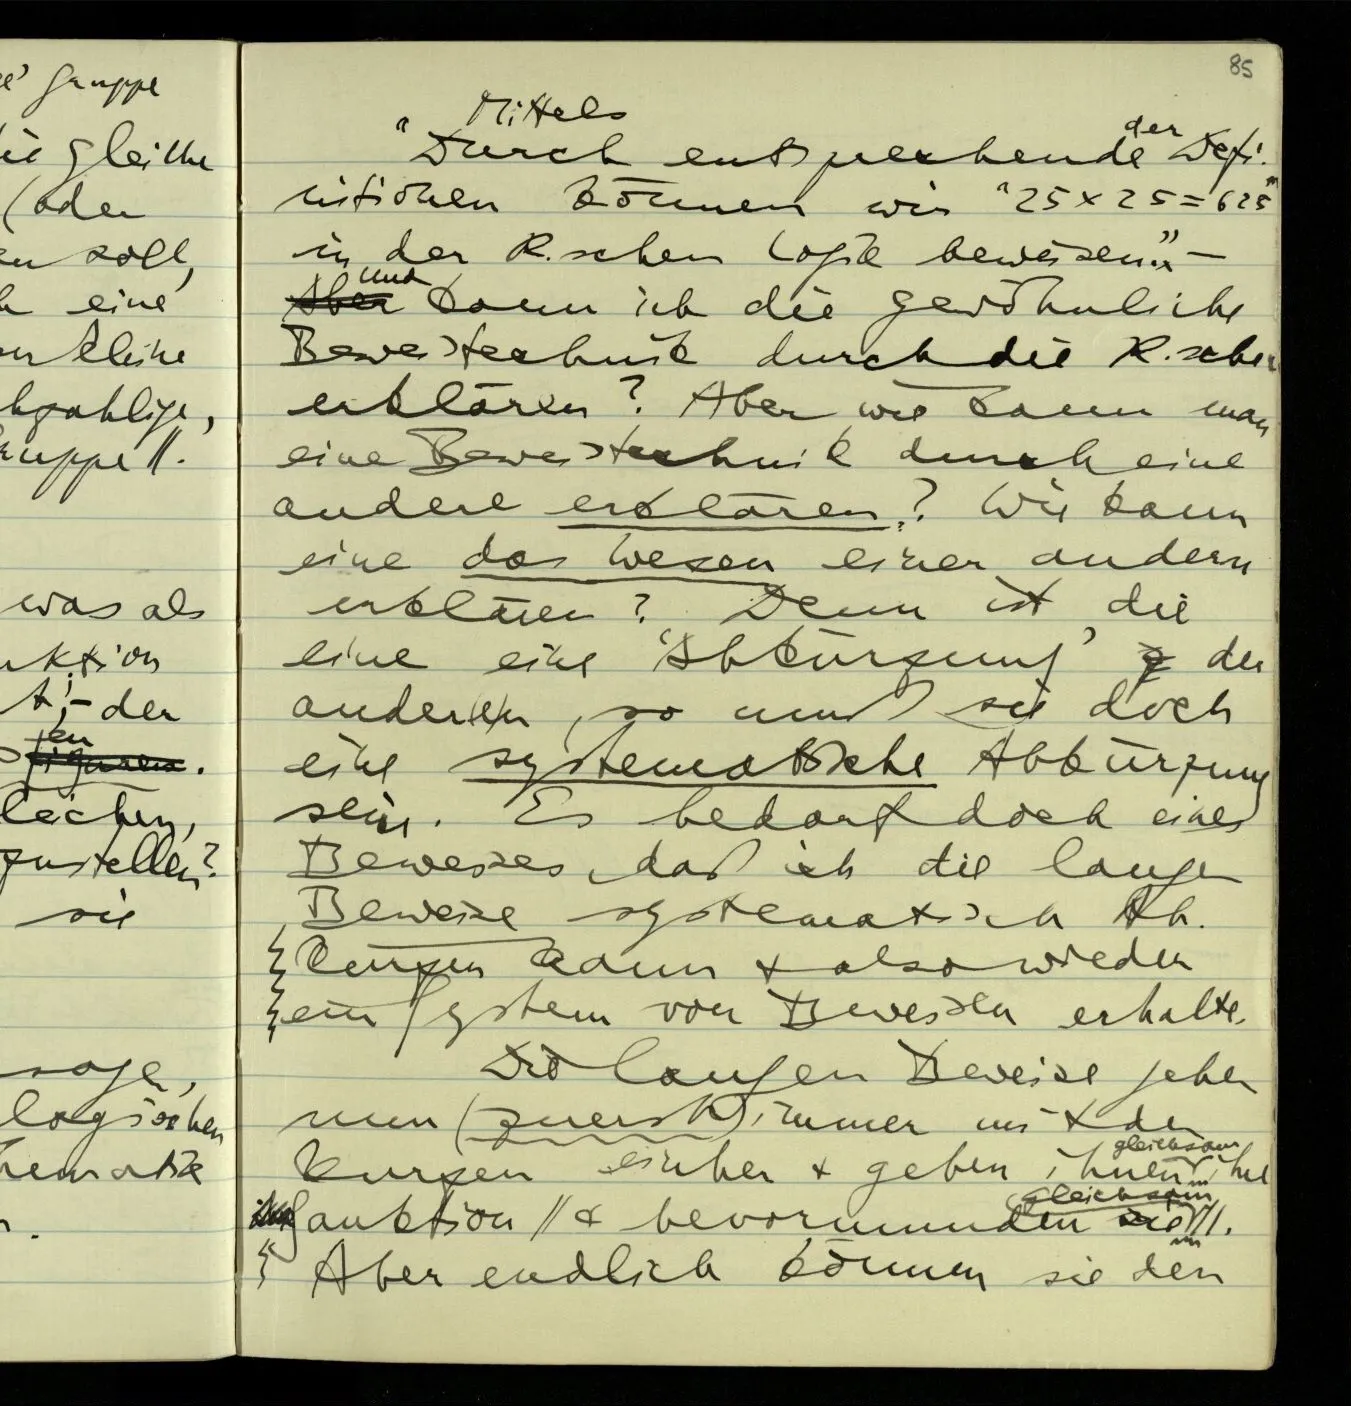 e' Gruppe
die gleiche
(oder
en soll,
h eine
kleine
hzahlige,
Gruppe//.
was als
nktion
t; – der
en
figuren.
lächen,
zustellen?
sie
sage,
logischen
hematik
n.
85
Mittels
der
"Durch entsprechende Defi-
nitionen können wir "25×25=625"
in der R.schen Logik beweisen." –
und
Aber kann ich die gewöhnliche
Beweistechnik durch die R.sche
erklären? Aber wie kann man
eine Beweistechnik durch eine
andere erklären? Wie kann
eine das Wesen einer andern
erklären? Denn ist die
eine eine 'Abkürzung' der
anderen, so muß sie doch
eine systematische Abkürzung
sein. Es bedarf doch eines
Beweises, daß ich die langen
Beweise systematisch ab-
kürzen kann & also wieder
ein System von Beweisen erhalte.
Die langen Beweise gehen
nun (zuerst) immer mit den
gleichsam
kurzen einher & geben ihnen ihre
gleichsam
Sanktion // & bevormunden sie //.
Aber endlich können sie den